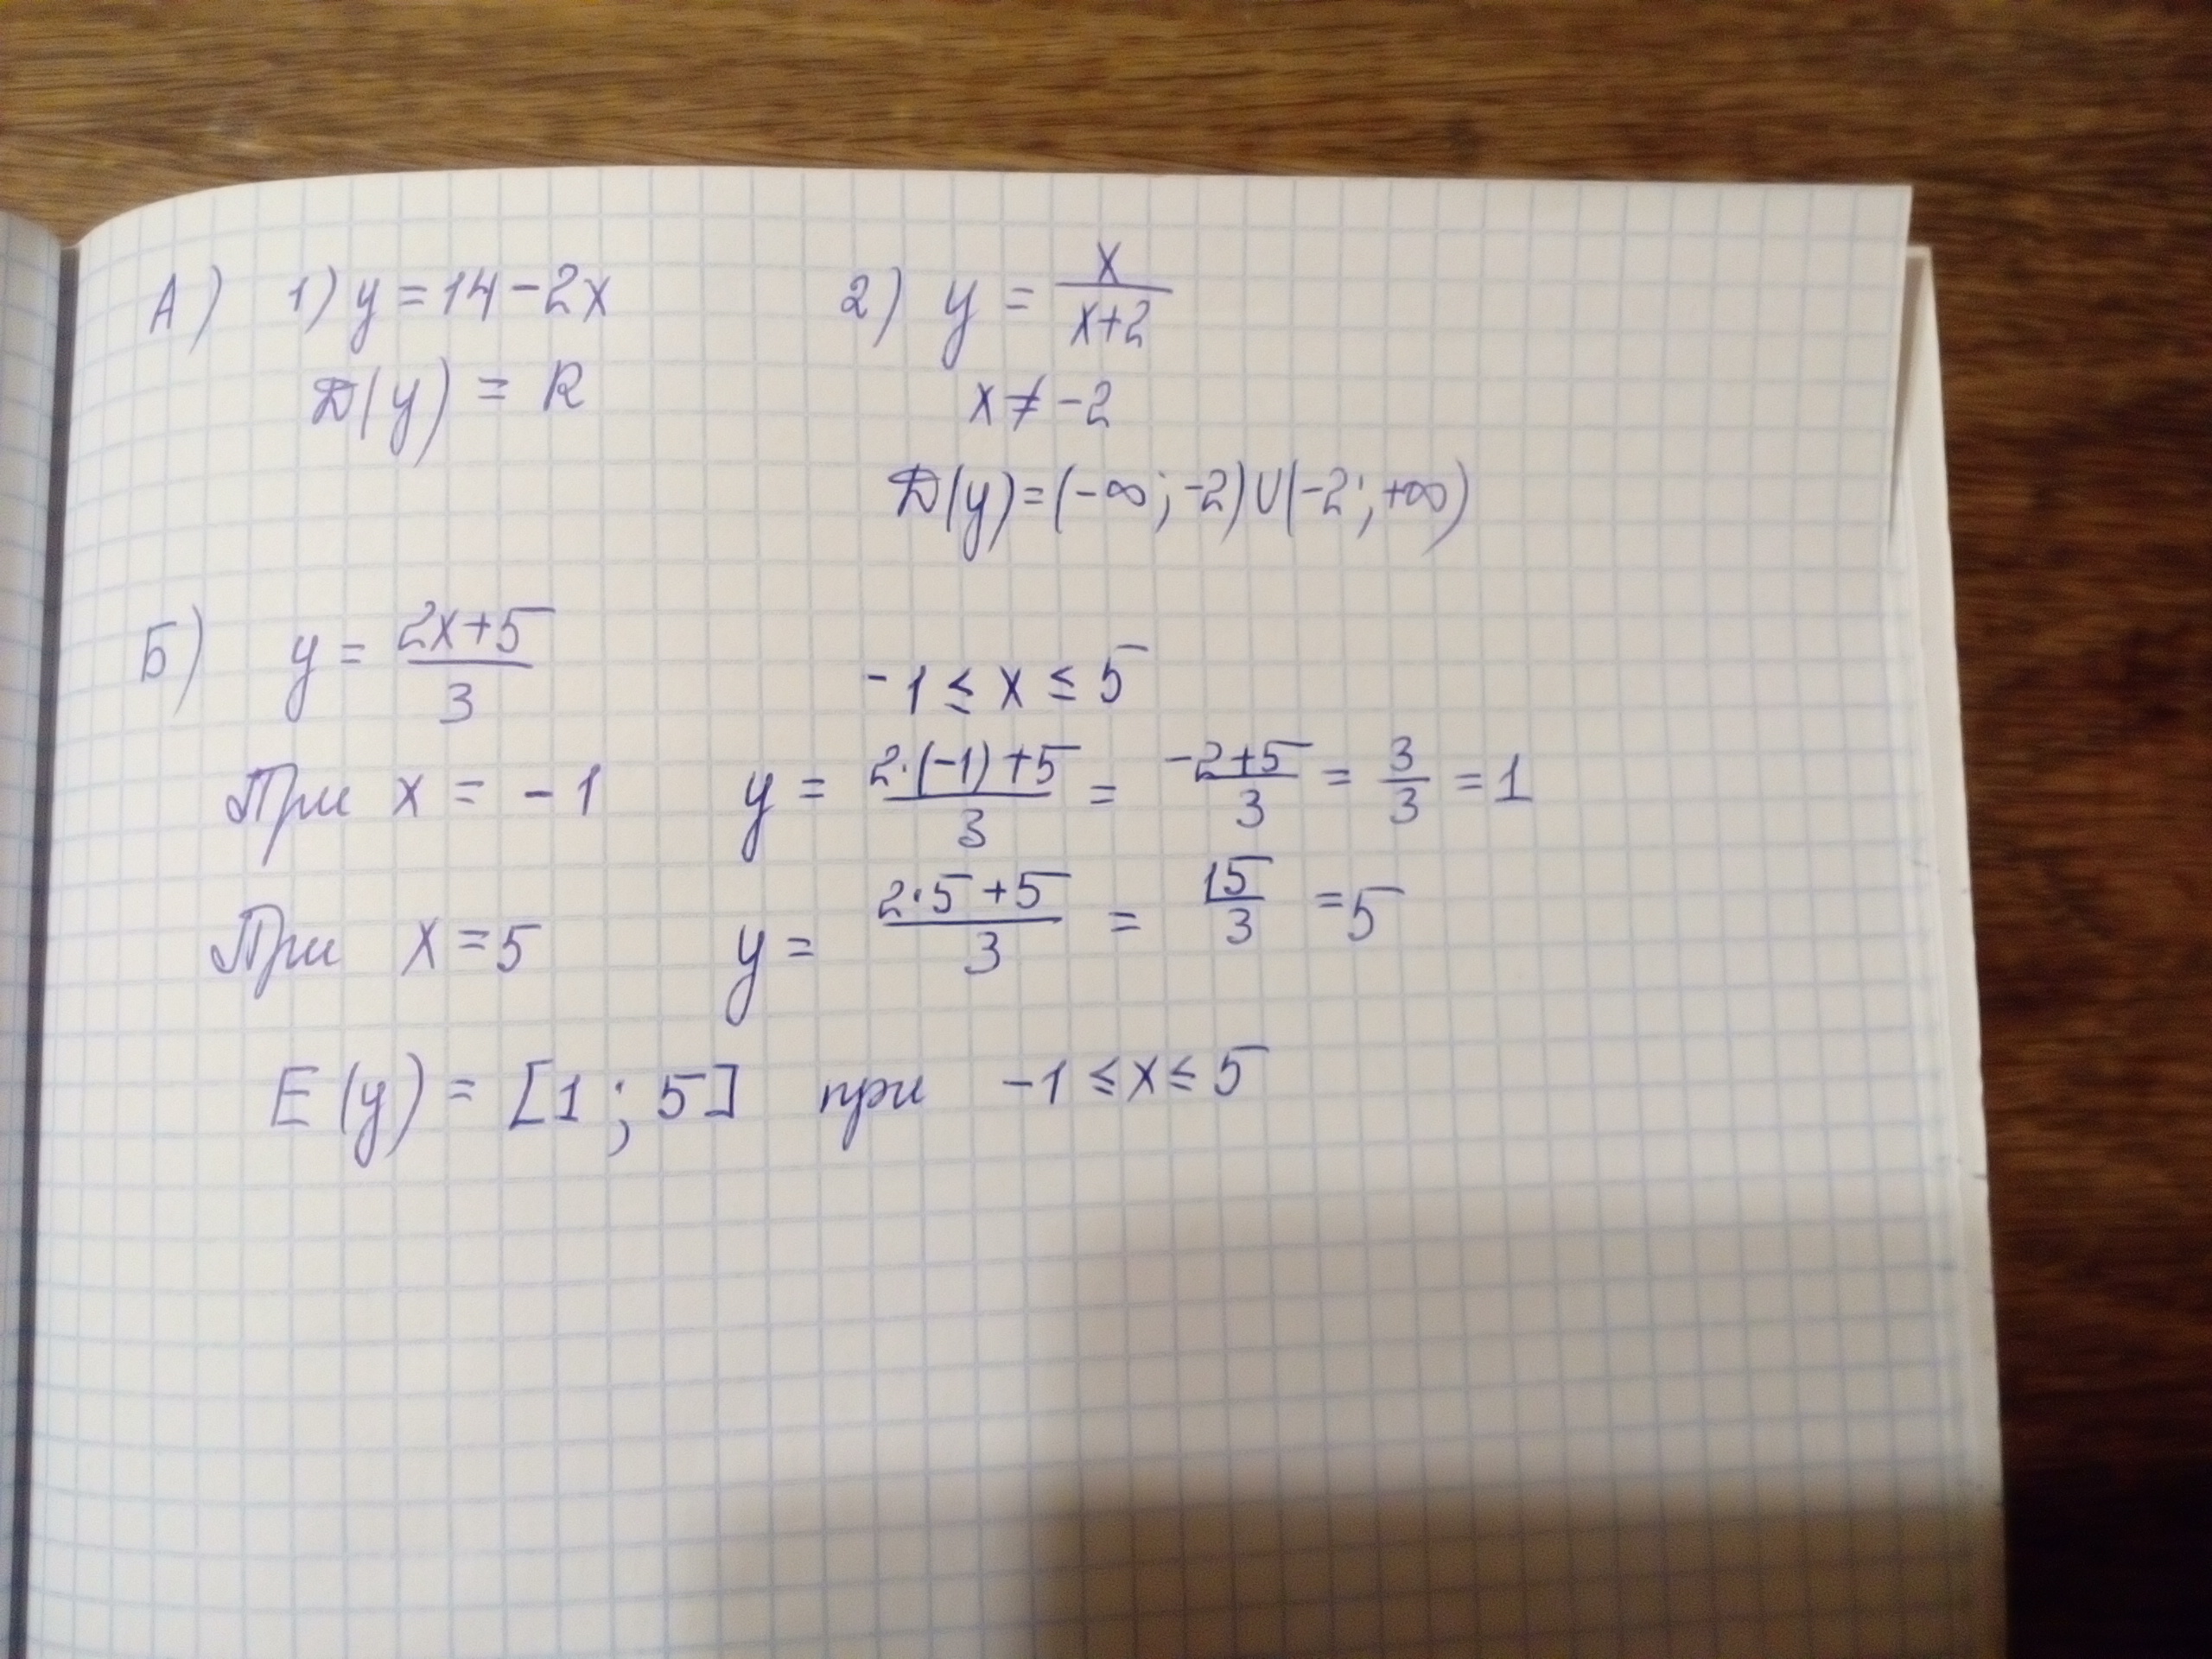 А) 1) y = 14 - 2x 2) y = x/(x+2)
D(y) = R x ≠ -2
D(y) = (-∞; -2) U (-2; +∞)
Б) y = (2x+5)/3 -1 ≤ x ≤ 5
При x = -1 y = (2·(-1)+5)/3 = (-2+5)/3 = 3/3 = 1
При x = 5 y = (2·5+5)/3 = 15/3 = 5
E(y) = [1; 5] при -1 ≤ x ≤ 5